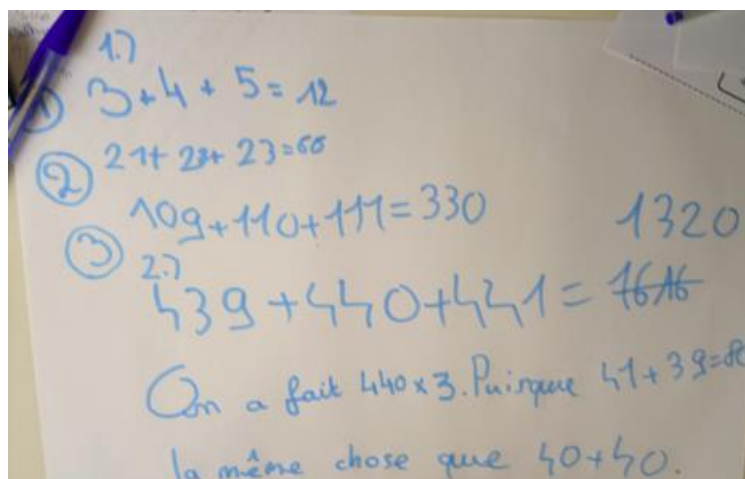 1.)
① 3+4+5=12
② 21+22+23=66
109+110+111=330
1320
③ 2.)
439+440+441=1616
On a fait 440×3. Puisque 41+39=80
la même chose que 40+40.